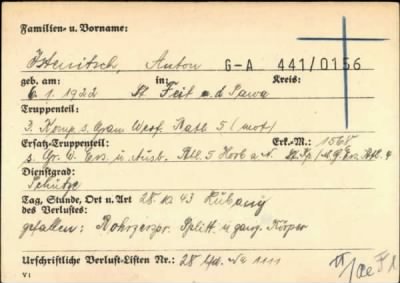 Familien- u. Vorname:
Istenitsch, Anton G-A 441/0156
geb. am: in: Kreis:
6.1.1922 St. Veit a.d. Sawa
Truppenteil:
3. Komp. s. Gran. Werf. Batl. 5 (mot)
Ersatz-Truppenteil: Erk.-M.: 1568
s. Gr. W. Ers. u. Ausb. Btl. 5 Horb a. N. St. Kp. / M.G. Ers. Btl. 4
Dienstgrad:
Schütze
Tag, Stunde, Ort u. Art 28.10.43
des Verlustes:
gefallen: Rohrzerspr. Splitt. u. ganz. Körper
Urschriftliche Verlust-Listen Nr.: 28 1111
V1